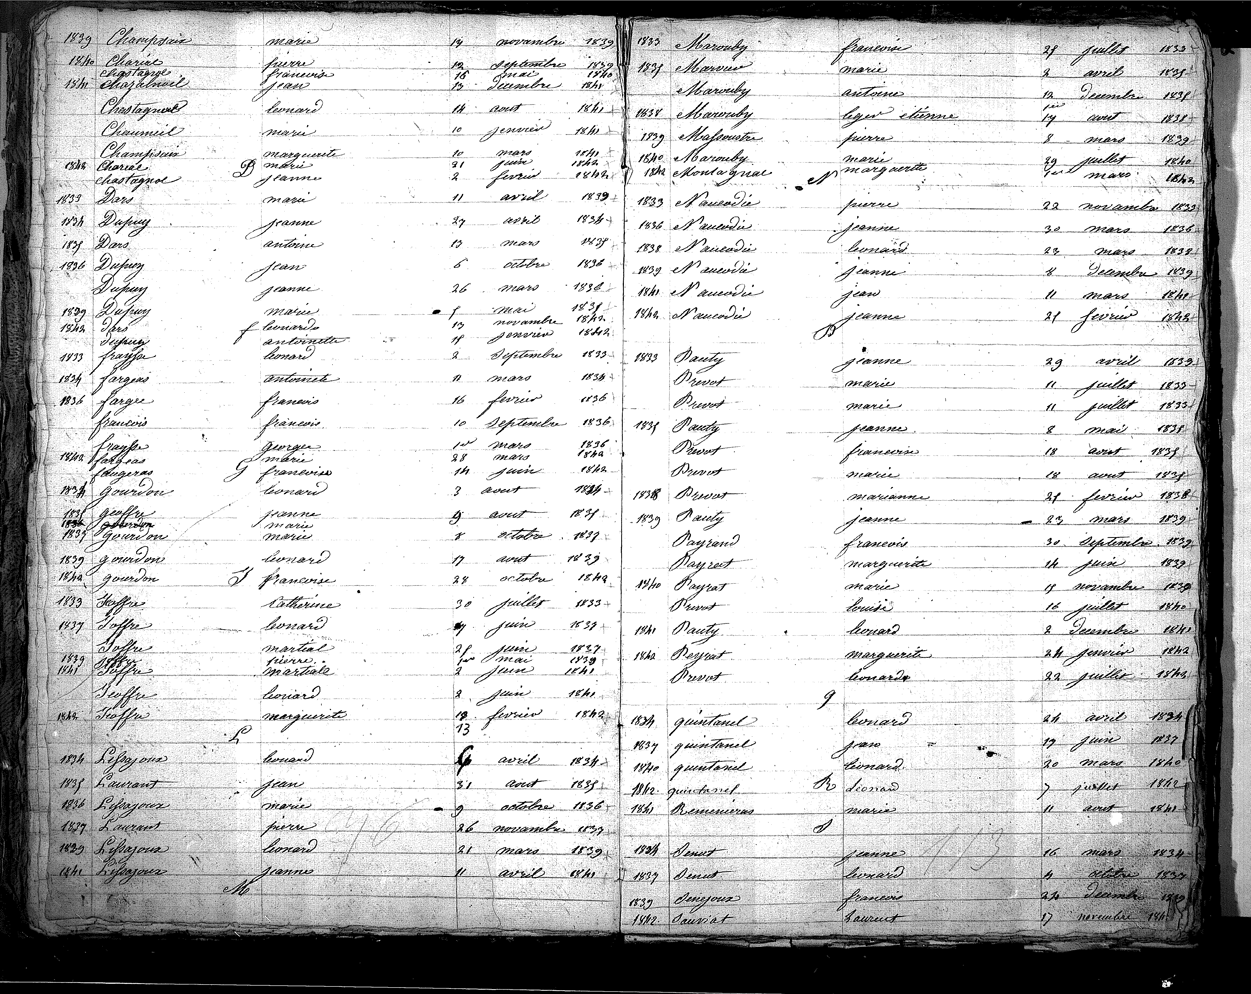 1839 Champsain marie 14 novembre 1839
1840 Chariéé pierre 12 septembre 1839
chastagné francoise 16 mai 1840
1841 Chazalnoël jean 13 decembre 1841
Chastagnol leonard 14 aout 1841
Chaumeil marie 10 janvier 1841
Champsain marguerite 10 mars 1841
1842 marie 21 juin 1842
D
chastagnol jeanne 2 fevrier 1842
1833 Dars marie 11 avril 1833
1834 Dupuy jeanne 27 avril 1834
1835 Dars antoine 13 mars 1835
1836 Dupuy jean 6 octobre 1836
Dupuy jeanne 26 mars 1836
1839 Dupuy marie 5 mai 1835
1842 dars leonarde 13 novembre 1842
f
dupuy antoinette 15 janvier 1842
1833 leonard 2 septembre 1833
1834 fargeas antoinete 11 mars 1834
1836 farges francois 16 fevrier 1836
francois francois 10 septembre 1836
georges 1er mars 1836
1842 fargeas marie 28 mars 1842
G
faugeras francoise 14 juin 1842
1834 gourdon leonard 3 aout 1834
1835 geoffre jeanne 9 aout 1835
1836 gourdon marie
1837 gourdon marie 8 octobre 1837
1839 gourdon leonard 17 aout 1839
1842 gourdon francoise 28 octobre 1842
J
1833 Joffre Catherine 30 juillet 1833
1837 Joffre leonard 7 juin 1837
Joffre martial 25 juin 1837
1839 Joffre pierre 1er mai 1839
1841 Joffre martiale 2 juin 1841
Jeoffre leonard 2 juin 1841
1842 Joffre marguerite 13 fevrier 1842
13
L
1834 Lefsajoux leonard 4 avril 1834
1835 Laurant jean 31 aout 1835
1836 Lefsajoux marie 9 octobre 1836
1837 Laurant pierre 26 novembre 1837
1839 Lefsajoux leonard 21 mars 1839
1841 Lefsajoux jeanne 11 avril 1841
M
96
1833 Marouby francoise 25 juillet 1833
1835 marie 2 avril 1835
Marouby antoine 12 decembre 1835
1838 Marouby leger etienne 17 aout 1838
1839 Mafsoutre pierre 8 mars 1839
1840 Marouby marie 29 juillet 1840
1842 Montagnac marguerite 1er mars 1842
N
1833 Naucodie pierre 22 novembre 1833
1836 Naucodie jeanne 30 mars 1836
1838 Naucodie leonard 23 mars 1838
1839 Naucodie jeanne 8 decembre 1839
1841 Naucodie jean 11 mars 1841
1842 Naucodie jeanne 25 fevrier 1842
P
1833 Pauty jeanne 29 avril 1833
Prevot marie 11 juillet 1833
Prevot marie 11 juillet 1833
1835 Pauty jeanne 8 mai 1835
Prevot francoise 18 aout 1835
Prevot marie 18 aout 1835
1838 Prevot marianne 25 fevrier 1838
1839 Pauty jeanne 23 mars 1839
Payrand francois 30 septembre 1839
Payrat marguerite 14 juin 1839
1840 Payrat marie 15 novembre 1839
Prevot louise 16 juillet 1840
1841 Pauty leonard 2 decembre 1841
1842 Peyrat marguerite 24 janvier 1842
Prevot leonarde 22 juillet 1842
q
1834 quintanel leonard 24 avril 1834
1837 quintanel jean 17 juin 1837
1840 quintanel leonard 20 mars 1840
1842 quintanel Léonard 7 juillet 1842
R
1841 Remenieras marie 11 aout 1841
S
1834 Senut jeanne 16 mars 1834
1837 Senut leonard 4 octobre 1837
113
1839 Senejoux francois 20 decembre 1839
1842 Sauviat Laurent 17 novembre 184